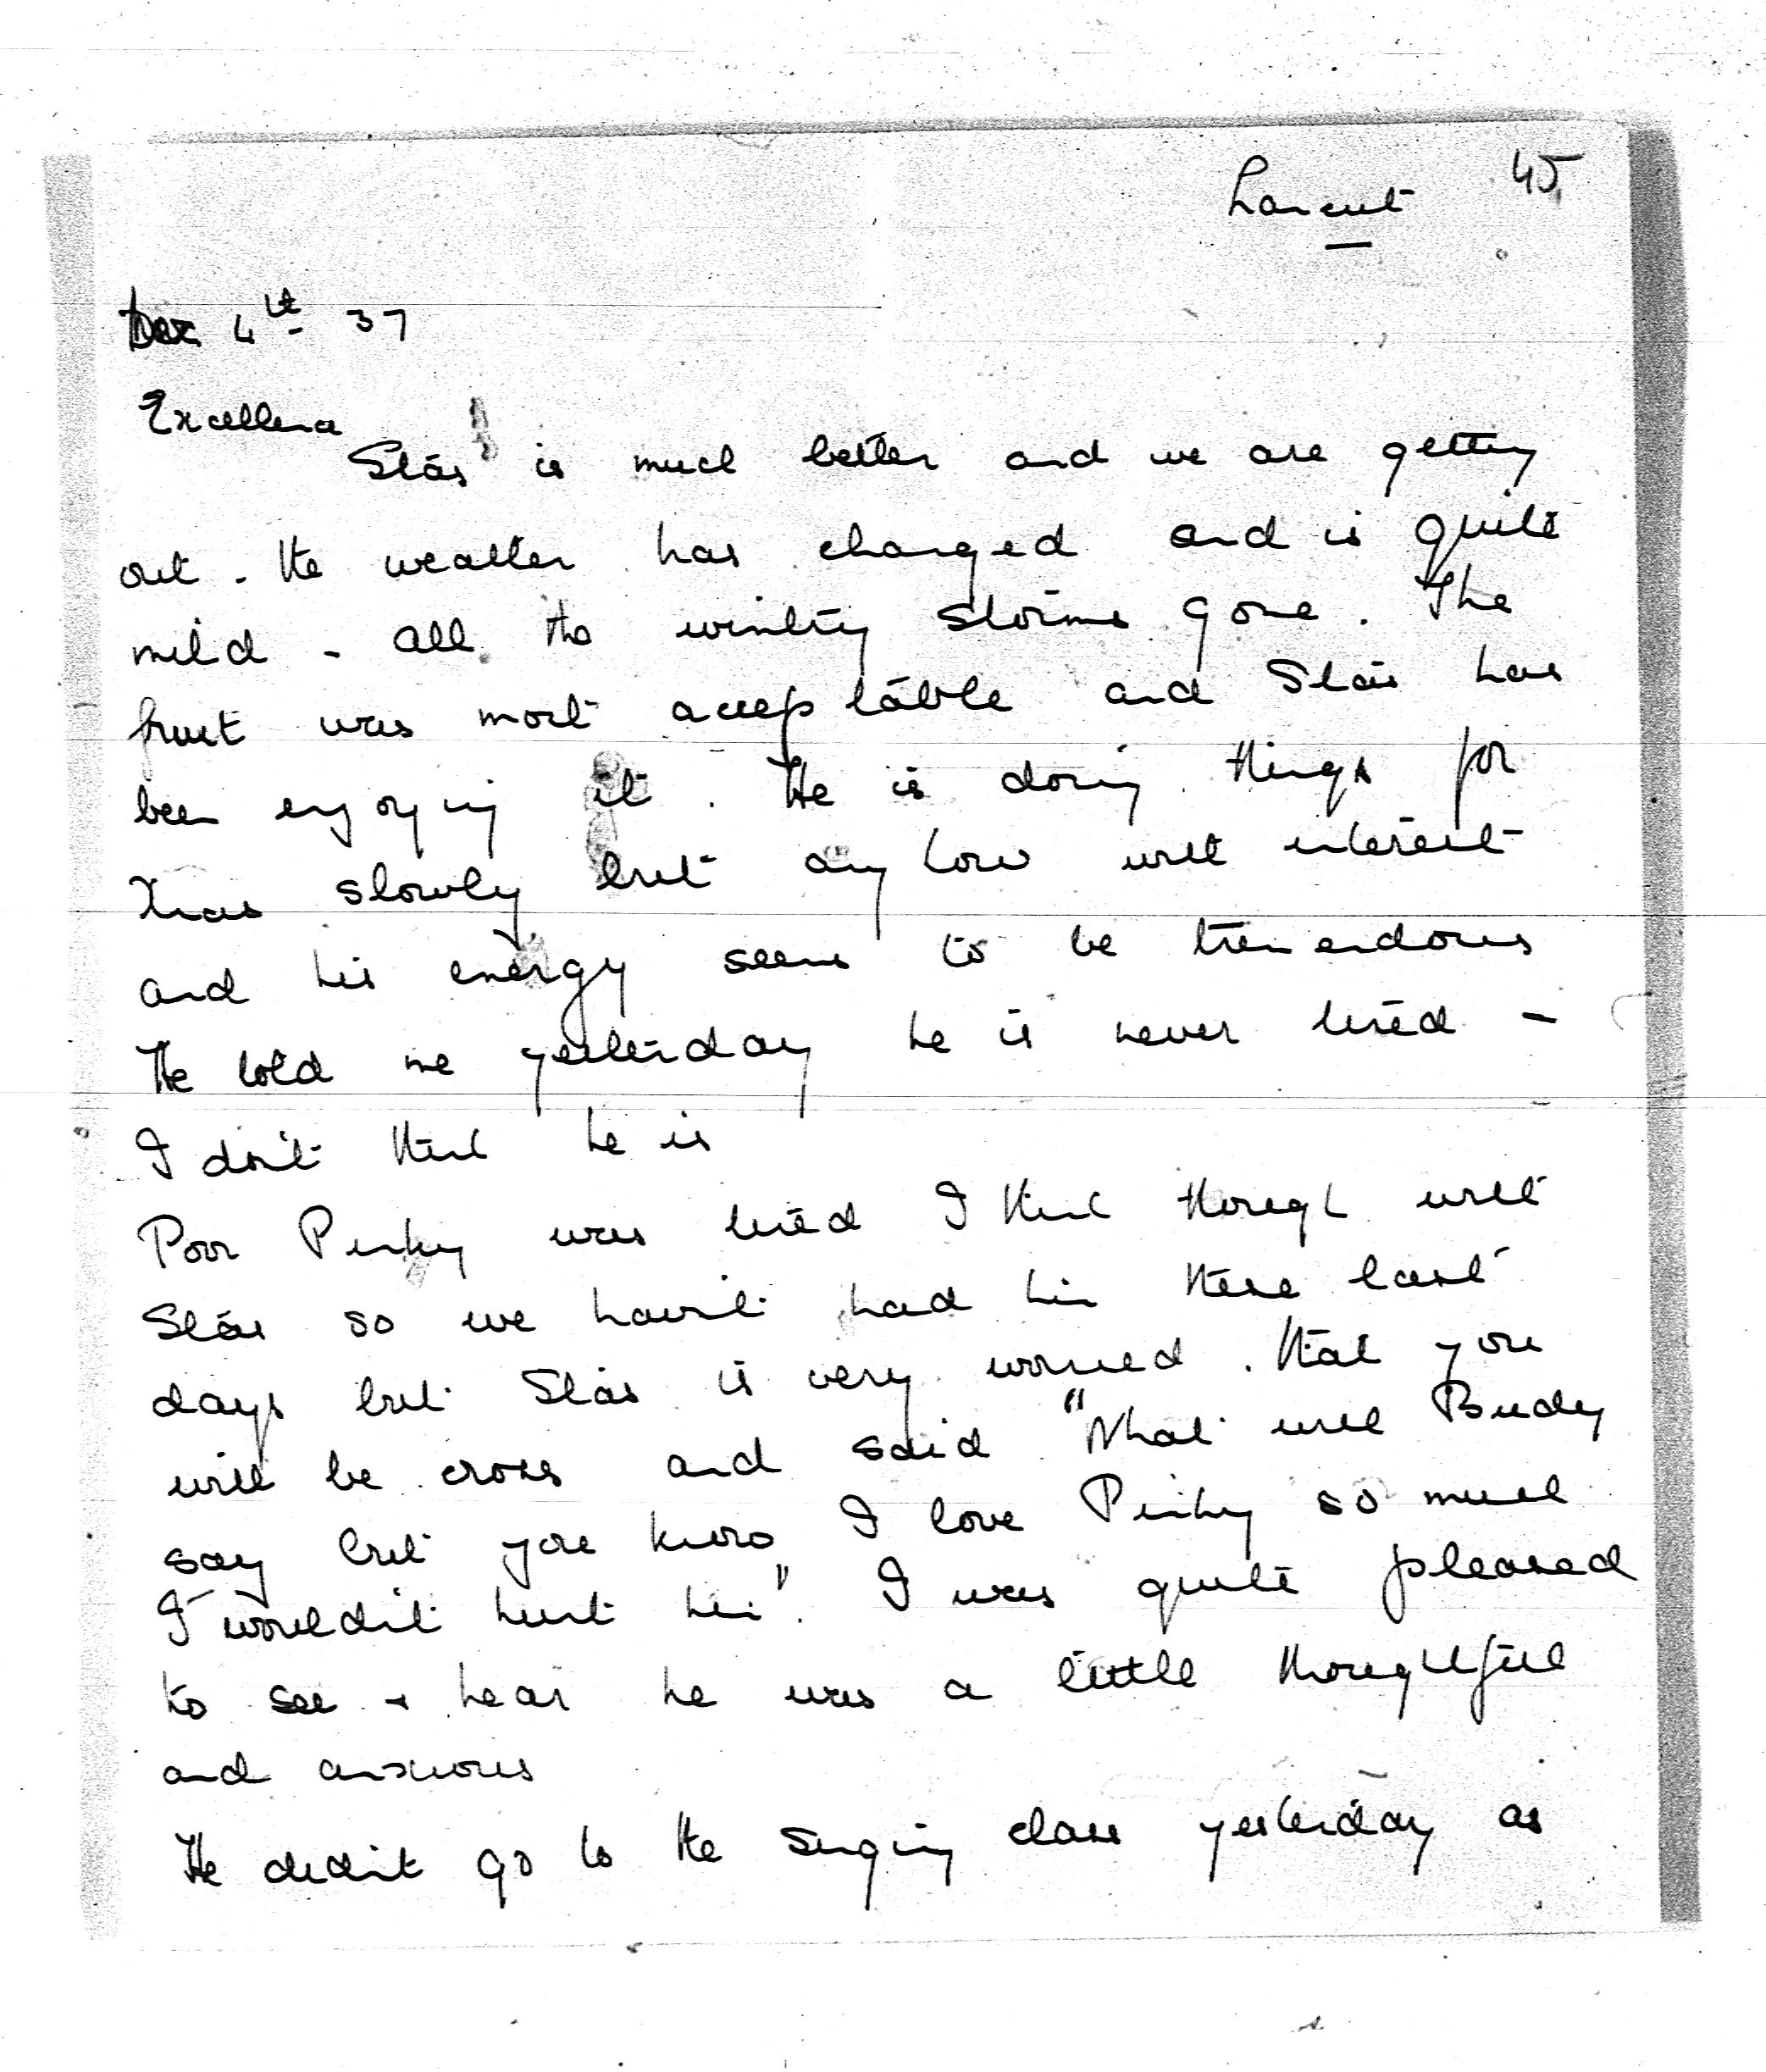 Lancut 45
Dec 4th 37
Excellence
Stás is much better and we are getting
out. The weather has changed and is quite
mild - all the wintry storms gone. The
fruit was most acceptable and Stás has
been enjoying it. He is doing things for
Xmas slowly but anyhow with interest
and his energy seems to be tremendous
He told me yesterday he is never tired -
I don't think he is
Poor Pinky was tired I think though with
Stás so we haven't had him these last
days but Stás is very worried that you
will be cross and said "What will Budy
say but you know I love Pinky so much
I wouldn't hurt him". I was quite pleased
to see + hear he was a little thoughtful
and anxious
He didn't go to the singing class yesterday as